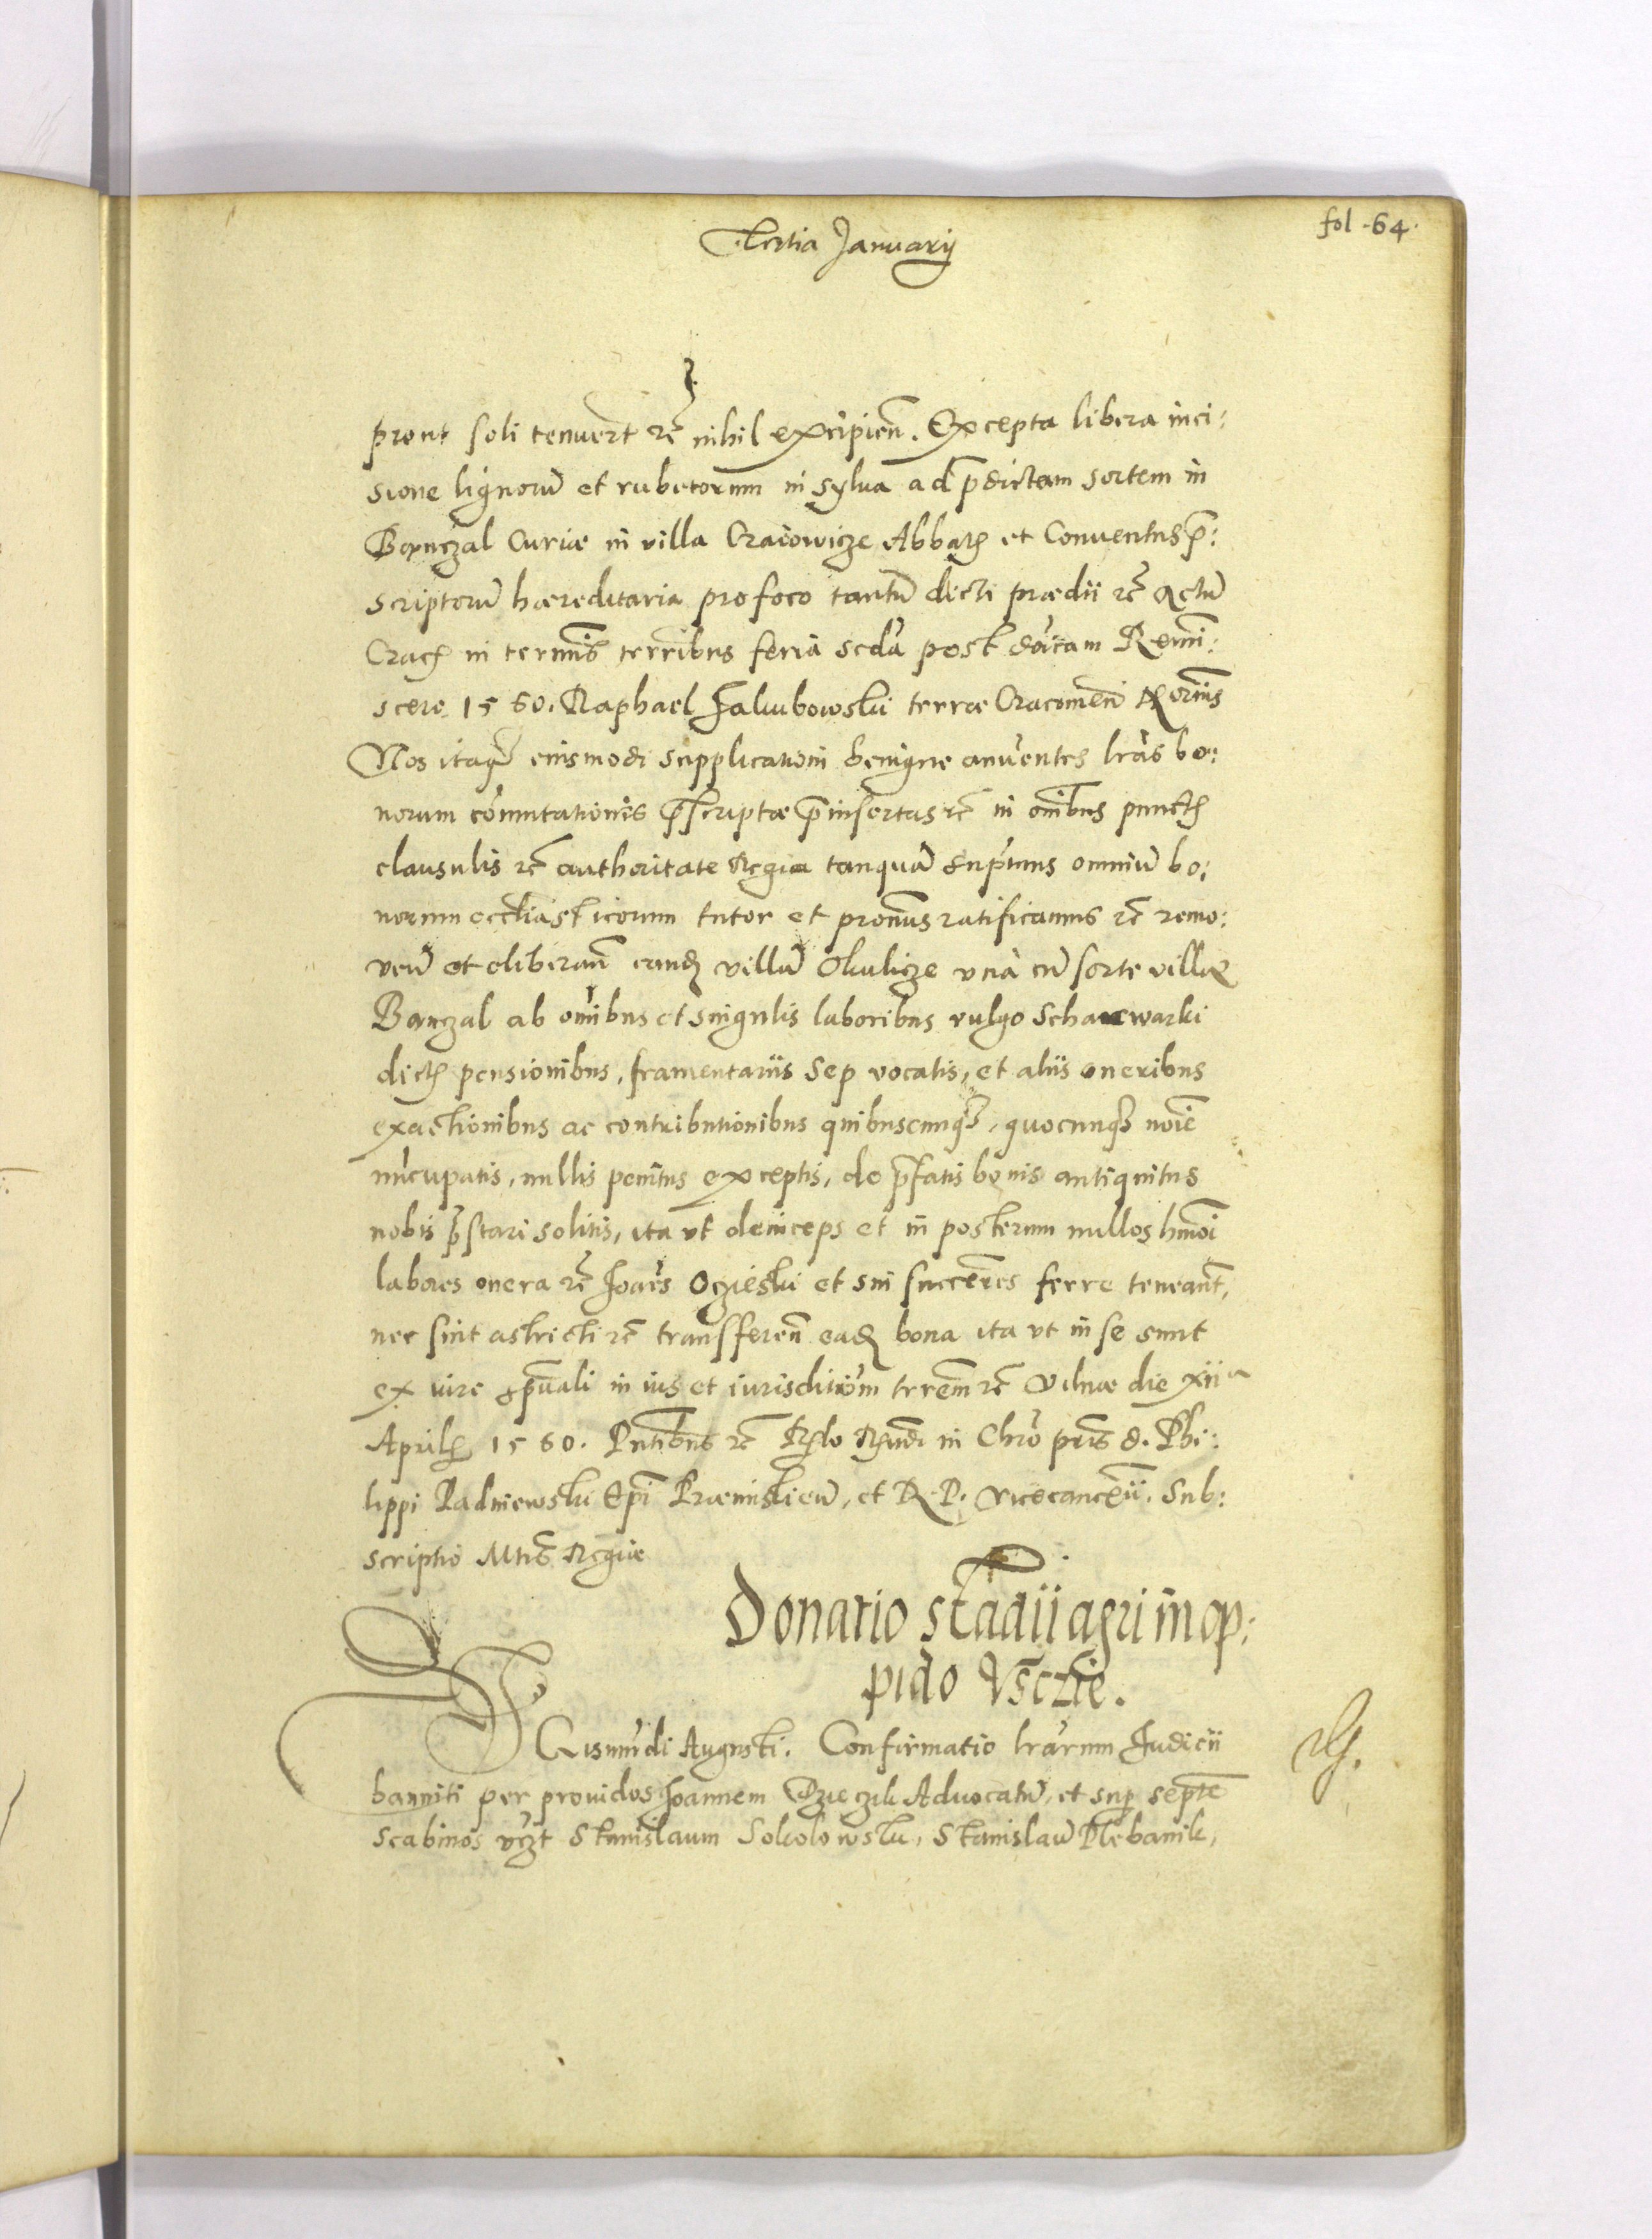 fol. 64.
Tertia Januarij
prout soli tenuert rc̃ nihil excipien̄. Excepta libera inci:
sione lignorū et rubetorum in sylva ad p̄dictam sortem in
Banczal Curiæ in villa Craiowicze Abbatis et Conventus p̄:
scriptorū hæreditaria pro foco tantū dicti prædii rc̃ Actū
Crac̄ in termīs terrībus feria scda post dōicam Remī:
scere 1560. Raphael Jakubowski terræ Cracovien̄ Notrius
Nos itaq̄ eiusmodi supplicationi benigne anuentes lrās bo:
norum cōmutationis p̄scriptæ p̄insertas rc̃ in oīnibus punctis
clausulis rc̃ authoritate Regia tanquā suprmus omniū bo:
norum ecclīasticorum tutor et pronus ratificamus rc̃ remo:
vem̄ et eliberam̄ eand̄ villā Okulicze vna cū sorte villæ
Banczal ab oībus et singulis laboribus vulgo Scharwarki
dictis pensionibus, framentariis Sep vocatis, et aliis oneribus
exactionibus ac contributionibus quibuscunq̄, quocunq̄ noīe
nūcupatis, nullis penitus exceptis, de p̄fatis bonis antiquitus
nobis p̄stari solitis, ita vt deinceps et in posterum nullos hmōi
labores onera rc̃ Joaēs Oczieski et sui succēres ferre teneant,
nec sint astricti rc̃ transferen̄ ead̄ bona ita vt in se sunt
ex iure spūali in ius et iurisditiōm trrem̄ rc̃ Vilnæ die xiia
Aprilis 1560. Pntibus rc̃ Rslo Rgndi in Chrō pris d. Phi:
lippi Padniewski Epī Præmislien̄, et R. P. Vicecancēii. Sub:
scriptio Mtis Regiæ
Donatio stadii agri in op:
pido Vsczie.
Gismūdi Augusti. Confirmatio lrārum Judicii
banniti per prouidos Joannem Dzieczik Advocatū, et sup septē
Scabinos vczt Stanislaum Sokolowski, Stanislaū Plebanik,